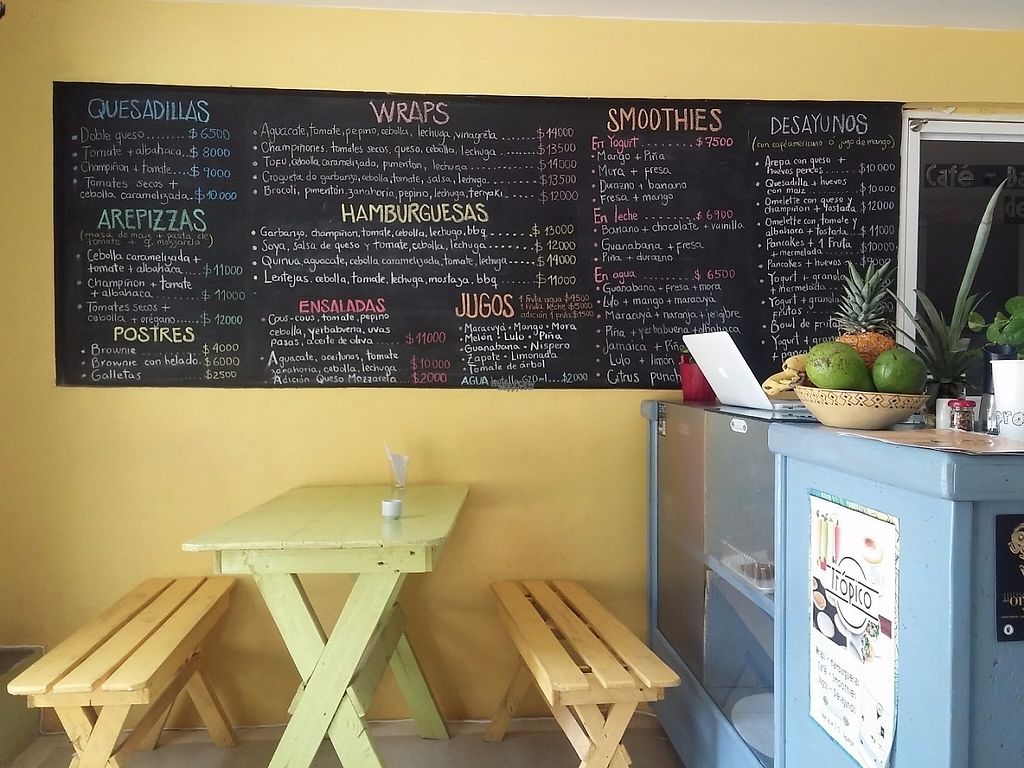 QUESADILLAS
• Doble queso ...... $ 6500
• Tomate + albahaca... $ 8000
• Champiñon + tomate... $ 9000
• Tomates secos +
cebolla caramelizada.. $10000
AREPIZZAS
(masa de maiz + pasta de
tomate + q. mozzarela)
• Cebolla caramelizada +
tomate + albahaca..... $ 11000
• Champiñon + tomate
+ albahaca........ $ 11000
• Tomates secos +
cebolla + orégano..... $ 12000
POSTRES
• Brownie ........ $ 4000
• Brownie con helado. $6000
• Galletas ....... $2500
WRAPS
• Aguacate, tomate, pepino, cebolla, lechuga, vinagreta ...... $ 14000
• Champiñones, tomates secos, queso, cebolla, lechuga ...... $ 13500
• Tofu, cebolla caramelizada, pimenton, lechuga ........ $ 14000
• Croqueta de garbanzo, cebolla, tomate, salsa, lechuga ..... $ 13500
• Brocoli, pimentón, zanahoria, pepino, lechuga, teriyaki ..... $ 12000
HAMBURGUESAS
• Garbanzo, champiñon, tomate, cebolla, lechugo, bbq ... $ 13000
• Soya, salsa de queso y tomate, cebolla, lechuga ....... $ 12000
• Quinua, aguacate, cebolla caramelizada, tomate, lechuga .. $ 14000
• Lentejas, cebolla, tomate, lechuga, mostaza, bbq ..... $ 11000
ENSALADAS
• Cous-cous, tomate, pepino
cebolla, yerbabuena, uvas
pasas, aceite de oliva .. $ 11000
• Aguacate, aceitunas, tomate
zanahoria, cebolla, lechuga $ 10000
• Adición Queso Mozzarela. $2000
JUGOS
1 fruta agua $4500
1 fruta leche $5000
adición fruta $1500
• Maracuyá • Mango • Mora
• Melón • Lulo • Piña
• Guanabana • Níspero
• Zapote • Limonada
• Tomate de árbol
AGUA botella 620ml... $2000
SMOOTHIES
En Yogurt ....... $ 7500
• Mango + Piña
• Mora + fresa
• Durazno + banano
• Fresa + mango
En leche ....... $ 6900
• Banano + chocolate + vainilla
• Guanabana + fresa
• Piña + durazno
En agua ....... $ 6500
• Guanabana + fresa + mora
• Lulo + mango + maracuyá
• Maracuyá + naranja + jengibre
• Piña + yerbabuena +
• Jamaica + Piña
• Lulo + limon
• Citrus punch
DESAYUNOS
(con café americano o jugo de mango)
• Arepa con queso +
huevos pericos ..... $10.000
• Quesadilla + huevos
con maiz ....... $10.000
• Omelette con queso y
champiñon + tostada.. $12000
• Omelette con tomate y
albahaca + tostada... $11000
• Pancakes + 1 Fruta
+ mermelada ..... $10000
• Pancakes + huevos
• Yogurt + granola
+ mermelada
• Yogurt + granola
+ fruta
• Bowl de fruta
Café - Ba
Trópico
Wraps - Hamburguesas
Café - Smoothies
Jugos - Desayunos